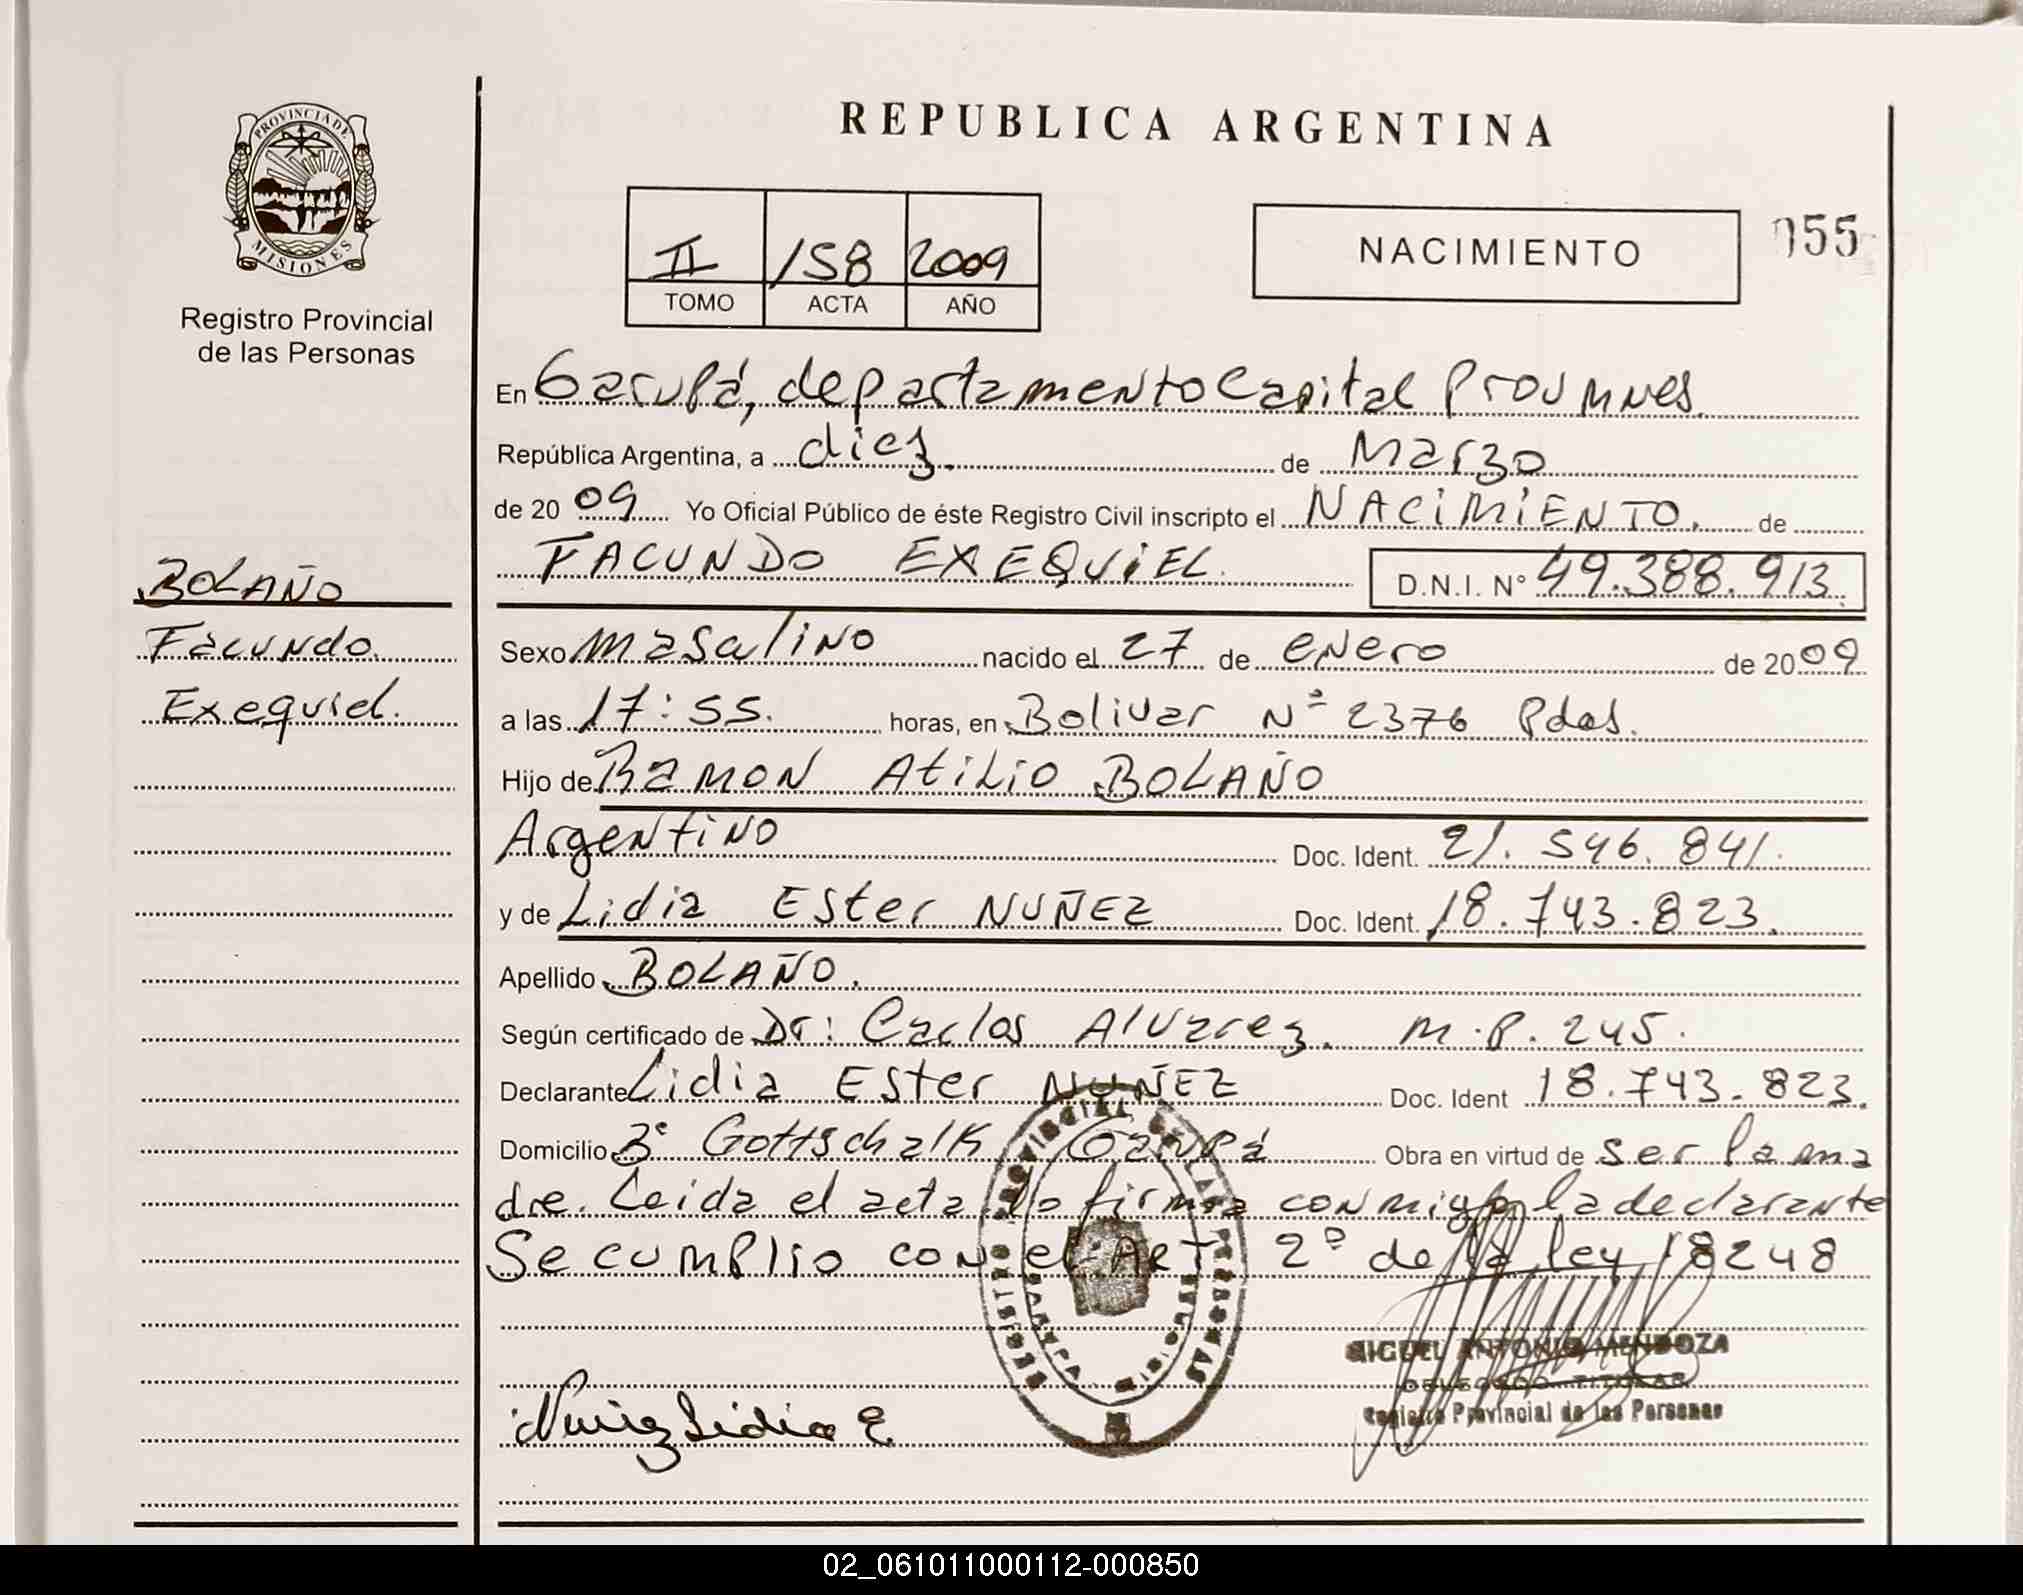 REPUBLICA ARGENTINA
PROVINCIA DE
MISIONES
Registro Provincial
de las Personas
II 158 2009
TOMO ACTA AÑO
NACIMIENTO
055
En Garupá, departamento Capital Prov Mnes.
República Argentina, a diez. de Marzo
de 20 09 Yo Oficial Público de éste Registro Civil inscripto el NACIMIENTO. de
FACUNDO EXEQUIEL. D.N.I. N° 49.388.913.
BOLAÑO
Facundo.
Exequiel.
Sexo Masculino nacido el 27 de enero de 20 09
a las 17:55. horas, en Bolivar Nº 2376 Pdas.
Hijo de Ramon Atilio BOLAÑO
Argentino Doc. Ident. 21.546.841.
y de Lidia Ester NUÑEZ Doc. Ident. 18.743.823.
Apellido BOLAÑO.
Según certificado de Dr: Carlos Alvarez. M.P. 245.
Declarante Lidia Ester NUÑEZ Doc. Ident 18.743.823.
Domicilio Bº Gottschalk Garupá Obra en virtud de ser la ma
dre. Leida el acta la firma conmigo la declarante
Se cumplio con el Art 2º de la ley 18248
REGISTRO PROVINCIAL DE LAS PERSONAS
GARUPA MISIONES
MIGUEL ANTONIO MENDOZA
DELEGADO TITULAR
Registro Provincial de las Personas
Nuñez Lidia E
02_061011000112-000850